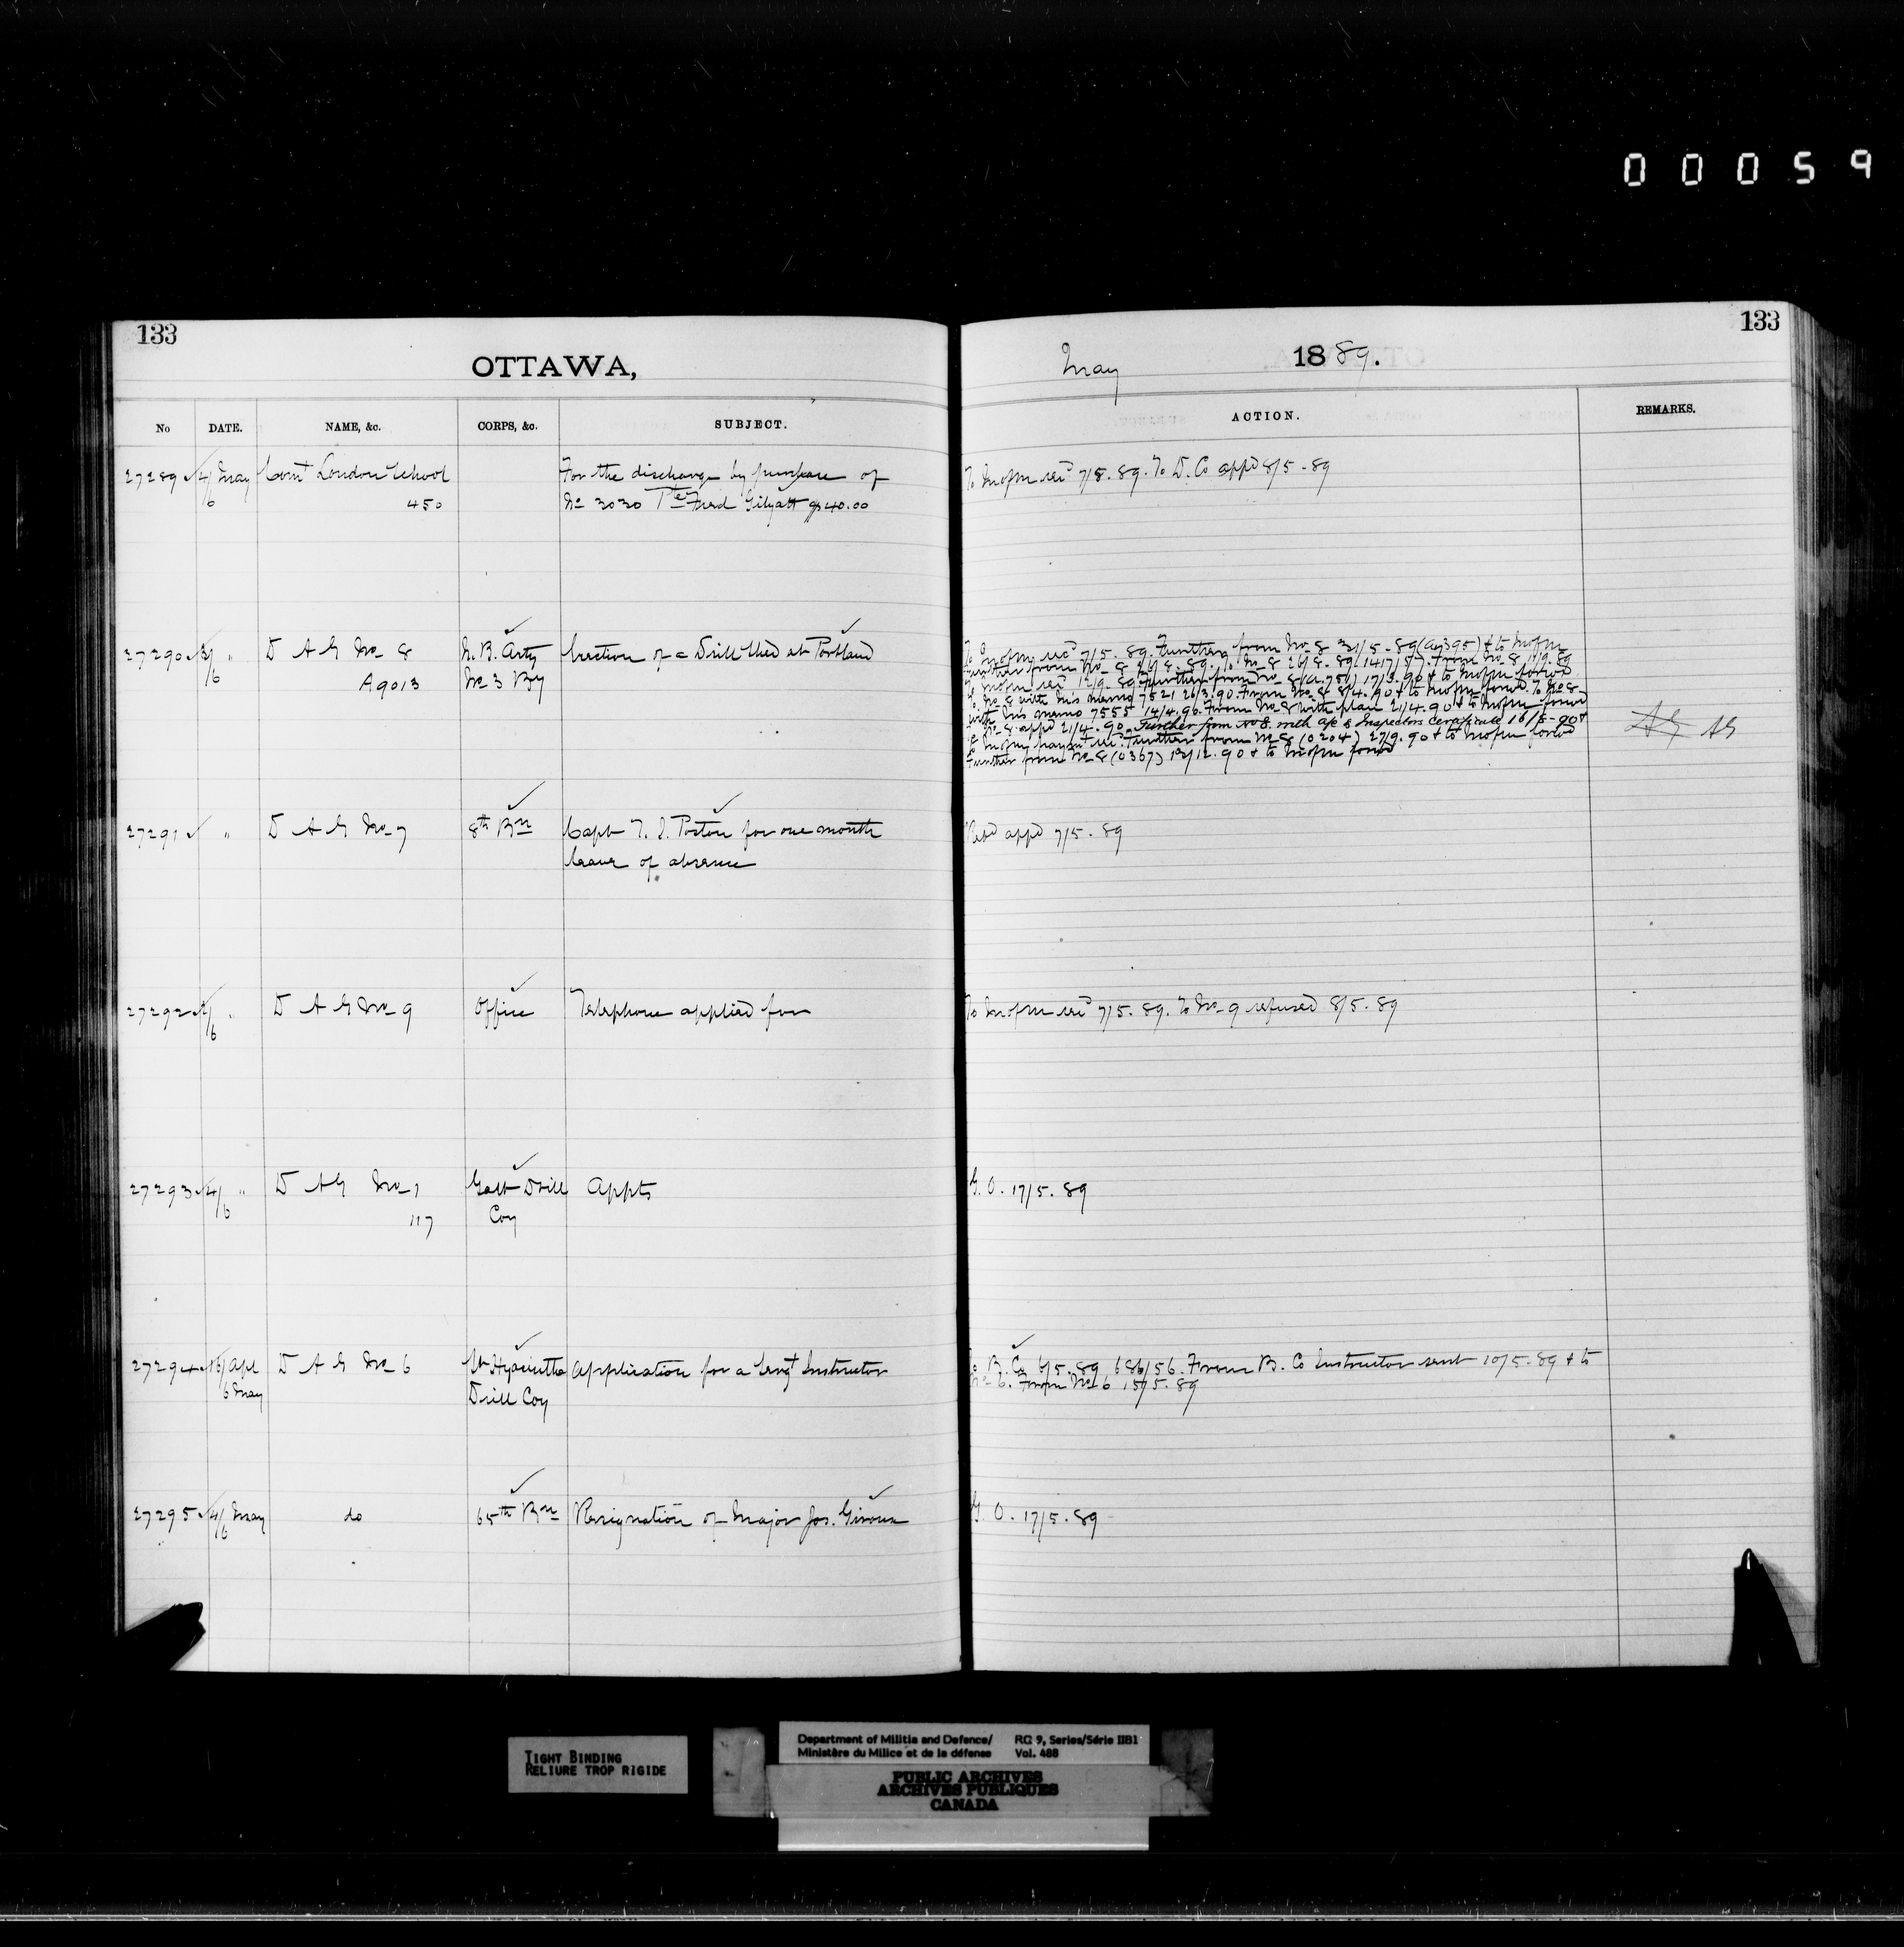 00059
133
OTTAWA,
No DATE. NAME, &c. CORPS, &c. SUBJECT.
27289 4/6 May Comt London School For the discharge by purchase of
450 No 3030 Pte Fred Gilyatt $40.00
27290 3/6 " D A G No 8 N. B. Arty Erection of a Drill Shed at Portland
A9013 No 3 By
27291 " D A G No 7 8th Bn Capt T. J. for one month
leave of absence
27292 2/6 " D A G No 9 Office Telephone applied for
27293 4/6 " D A G No 1 Galt Drill Appts
117 Coy
27294 16/ Apl D A G No 6 St Hyacinthe Application for a Sergt Instructor
6 May Drill Coy
27295 4/6 May do 65th Bn Resignation of Major Jos. Giroux
133
May 1889.
ACTION. REMARKS.
To Mofm recd 7/5.89. To D. Co appd 8/5-89
To Mofm recd 7/5.89. Further from No 8 31/5-89 (A9395) & to Mofm
Further from No 8 26/8.89. To No 8 26/8.89 1417/57. From No 8 11/9.89
To Mofm recd 12/9.89 Further from No 8 (A.751) 17/3.90 & to Mofm forwd
To No 8 with his memo 7521 26/3.90. From No 8 8/4.90 & to Mofm forwd. To No 8
with his memo 7555 14/4.90. From No 8 with plan 21/4.90 & to Mofm forwd
To No 8 appd 21/4.90. Further from No 8 with a/c & Inspectors Certificate 16/5-90 &
to Mofm recd. Further from No 8 (0204) 27/9.90 & to Mofm forwd
Further from No 8 (0367) 12/12.90 & to Mofm forwd
AG AG
Retd appd 7/5.89
To Mofm recd 7/5.89. To No 9 refused 8/5.89
G. O. 17/5.89
To B. Co 6/5.89 686/56. From B. Co Instructor sent 10/5-89 & to
No 6. From No 6 15/5.89
G. O. 17/5.89
TIGHT BINDING
RELIURE TROP RIGIDE
Department of Militia and Defence/ RG 9, Series/Série IIB1
Ministère du Milice et de la défense Vol. 488
PUBLIC ARCHIVES
ARCHIVES PUBLIQUES
CANADA